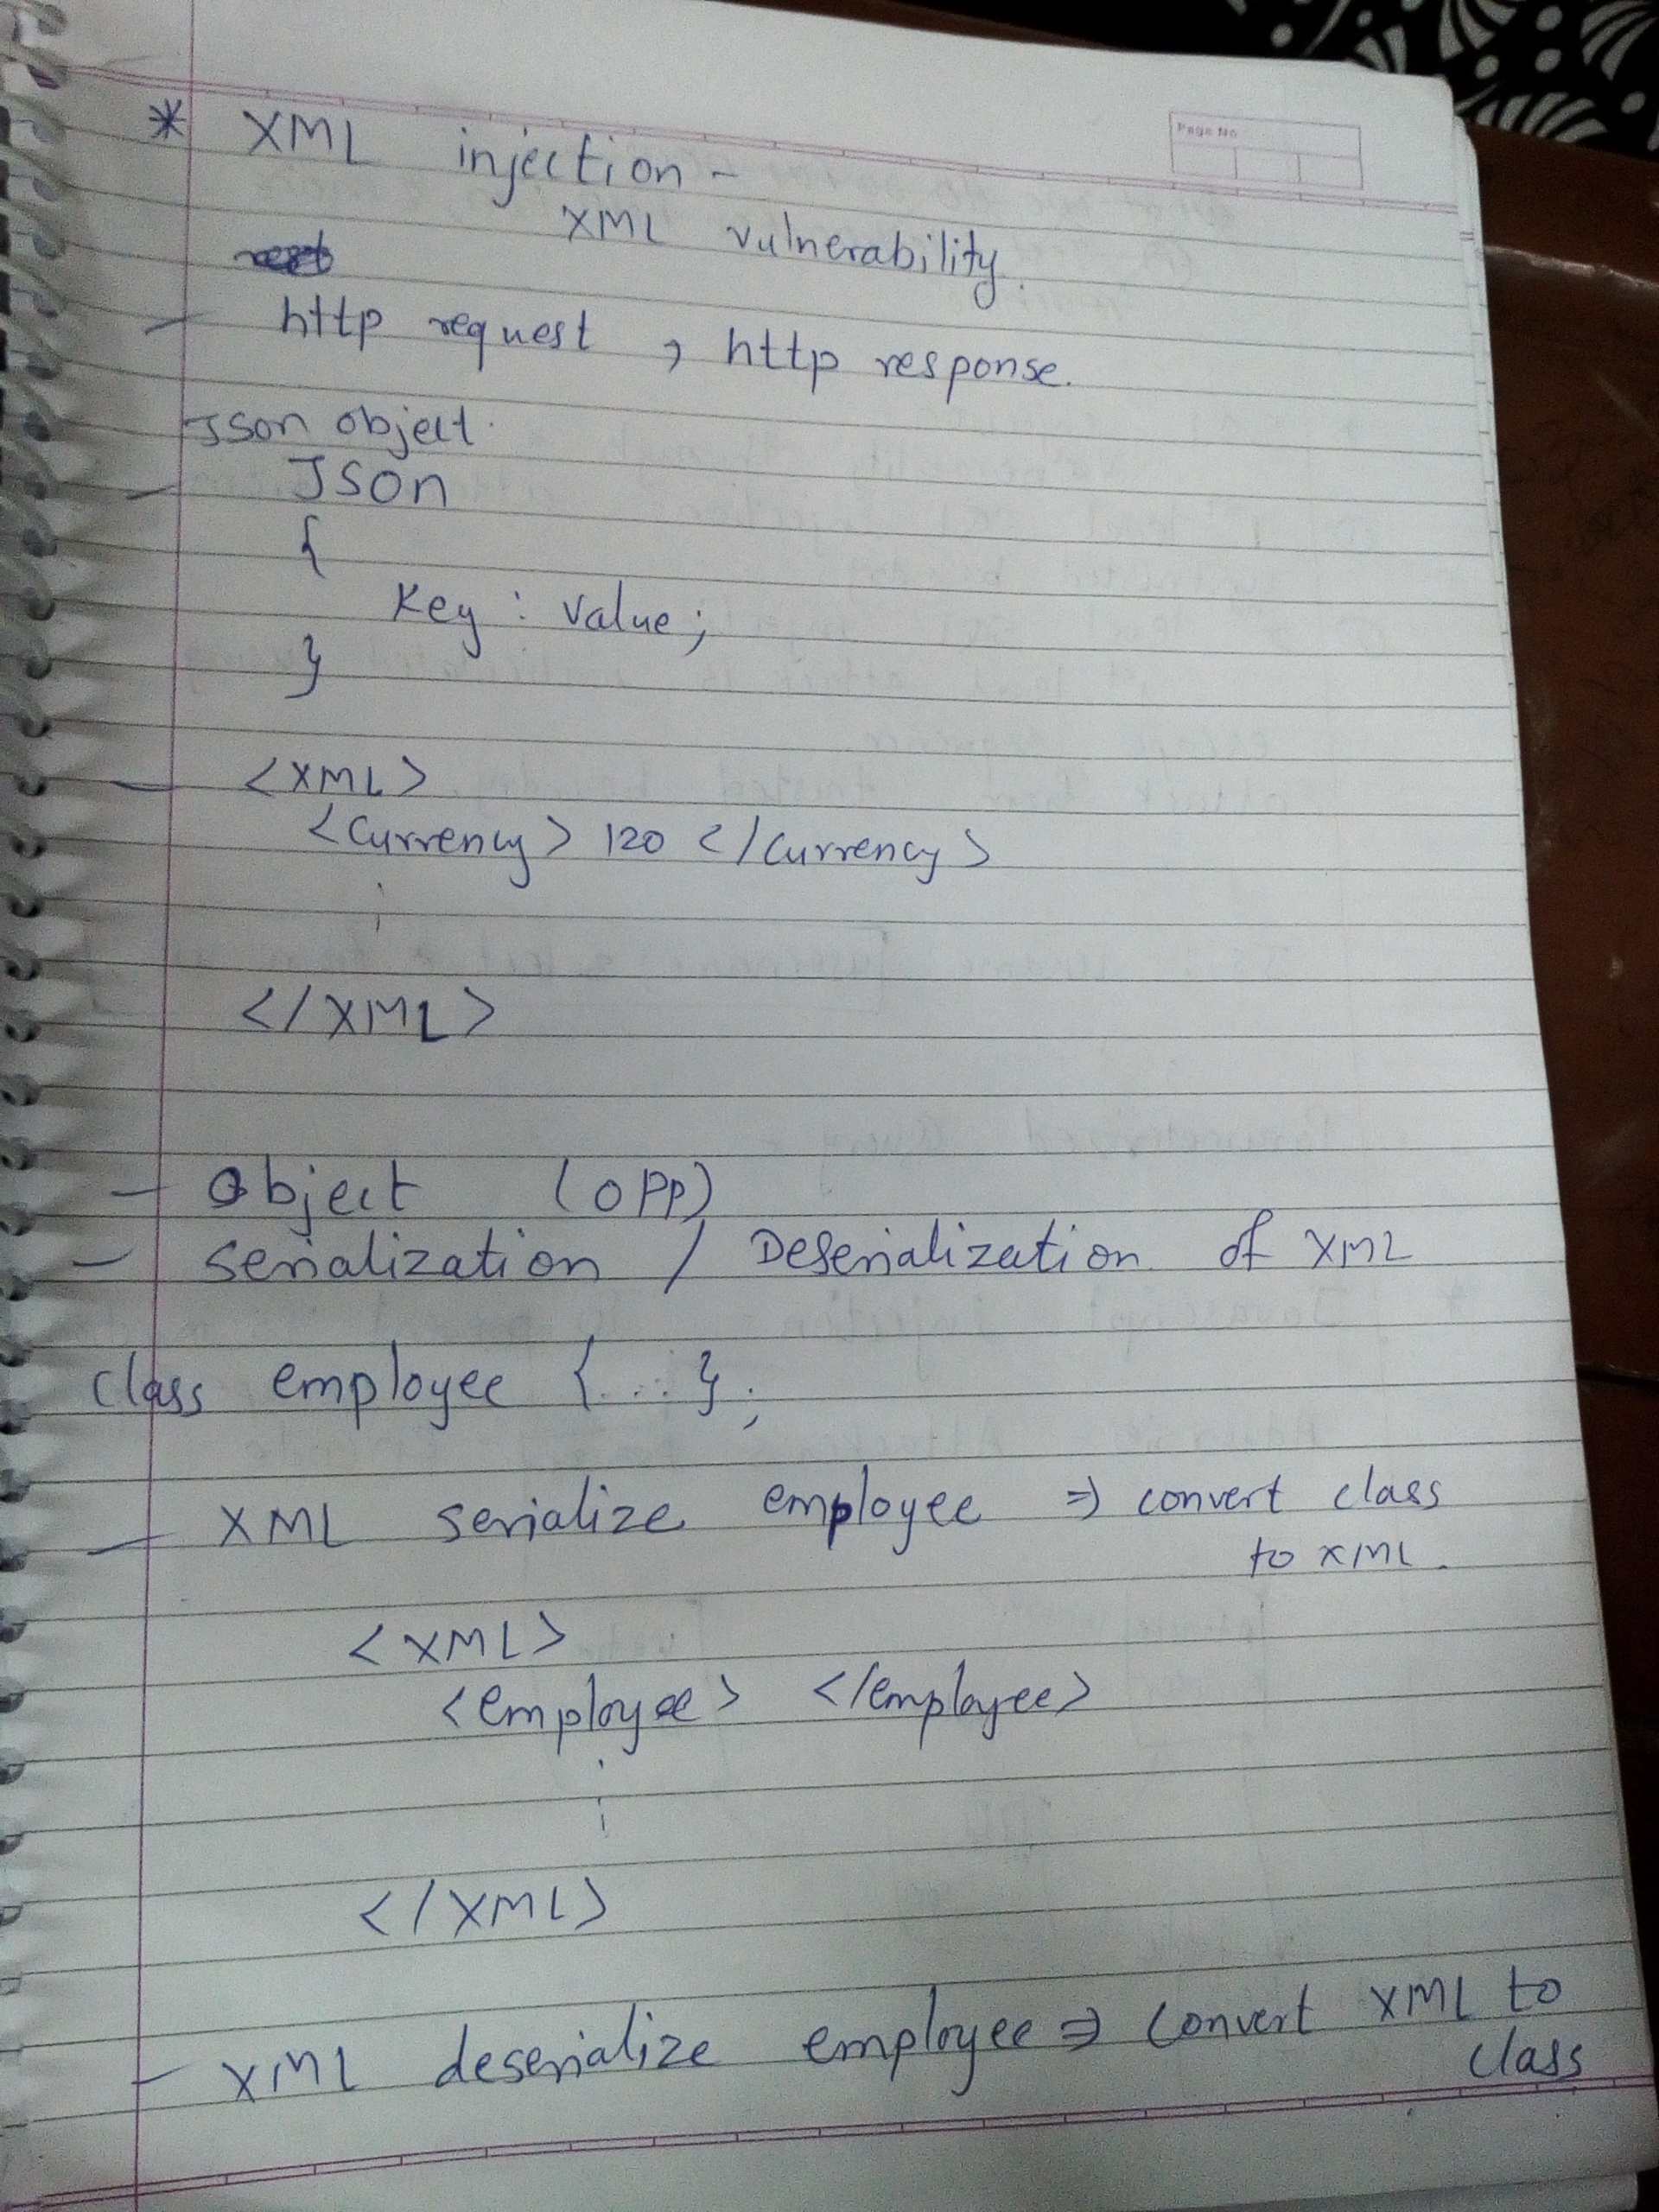 Page No
* XML injection -
XML vulnerability.
- http request , http response.
Json object.
- Json
{
Key : value;
}
- <XML>
<Currency> 120 </Currency>
</XML>
- Object (OPP)
- Serialization / Deserialization of XML
class employee {...};
- XML serialize employee ⇒ convert class
to XML.
<XML>
<employee> </employee>
</XML>
- XML deserialize employee ⇒ convert XML to
class